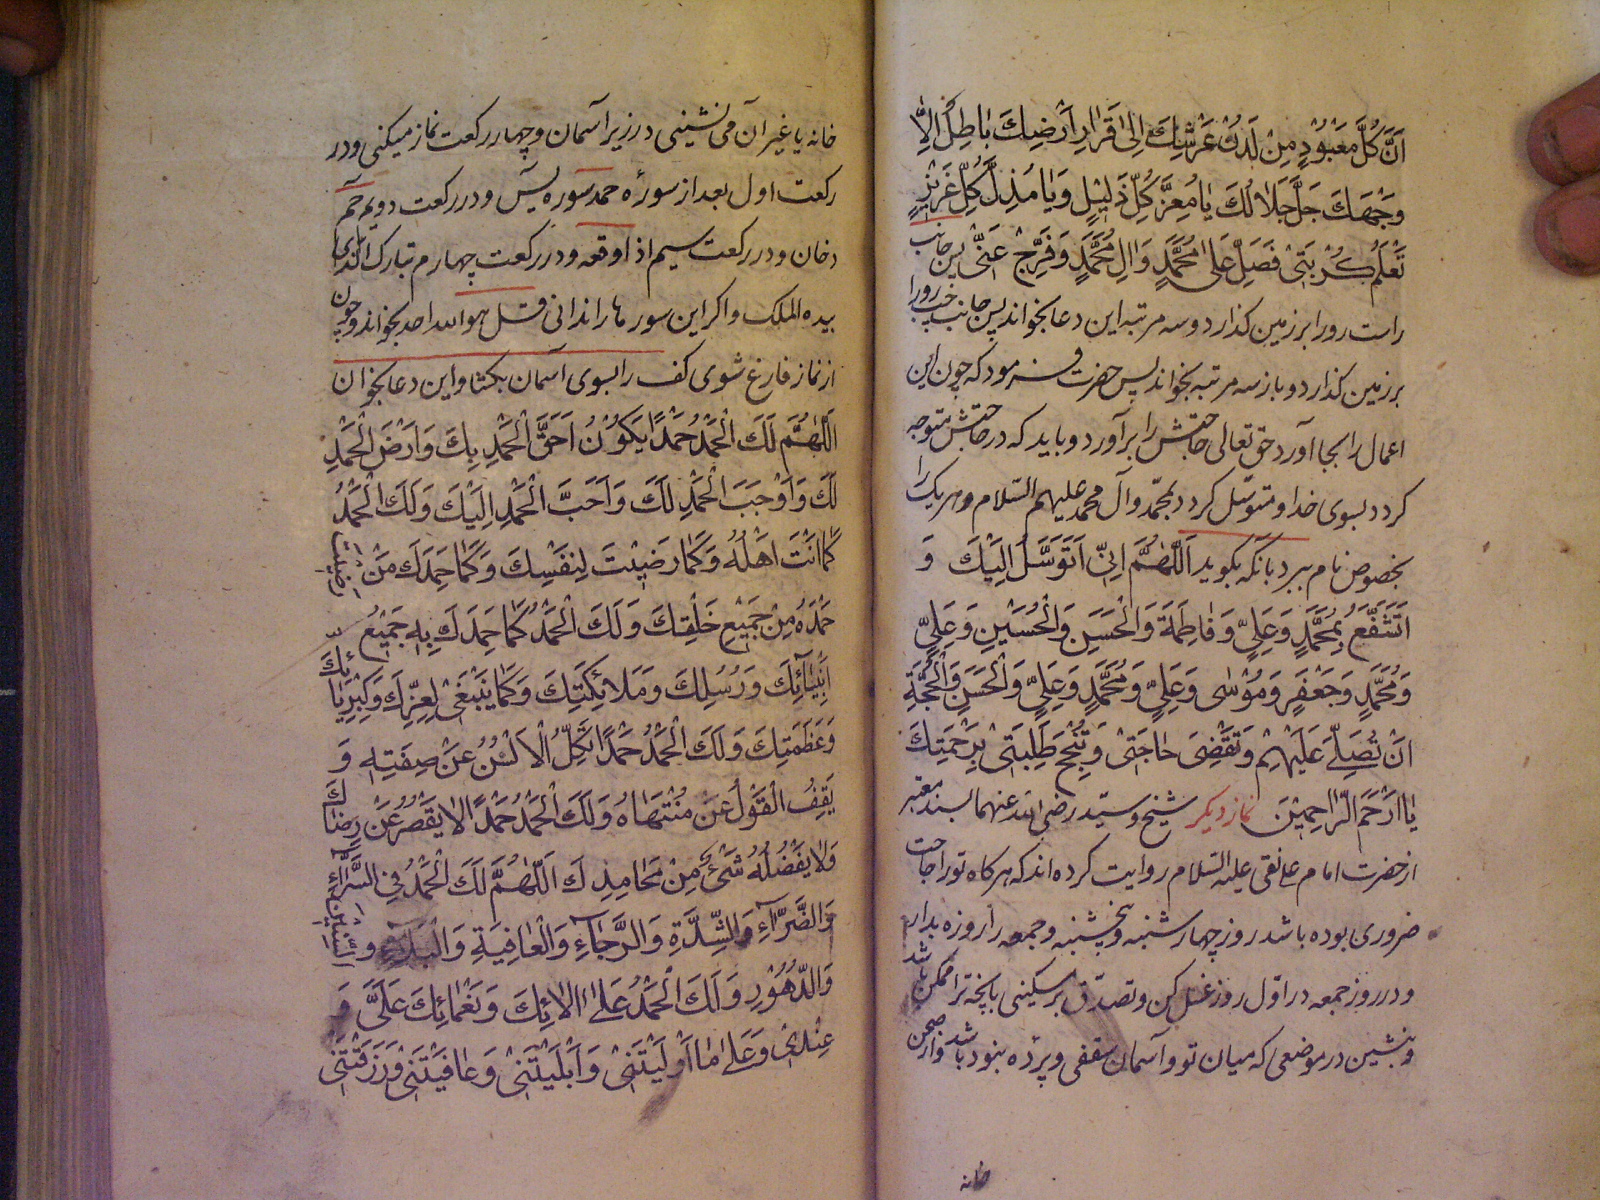 اَنَّ كُلَّ مَعْبُوْدٍ مِنْ لَدُنْ عَرْشِكَ اِلىٰ قَرٰارِ اَرْضِكَ بٰاطِلٌ اِلاّٰ
وَجْهَكَ جَلَّ جَلاٰلُكَ يٰا مُعِزَّ كُلِّ ذَلِيْلٍ وَيٰا مُذِلَّ كُلِّ عَزِيْزٍ
تَعْلَمُ كُرْبَتِىْ فَصَلِّ عَلىٰ مُحَمَّدٍ وَاٰلِ مُحَمَّدٍ وَفَرِّجْ عَنِّىْ پس جانب
راست رو را بر زمین گذارد و سه مرتبه این دعا بخواند پس جانب چپ رو را
بر زمین گذارد و باز سه مرتبه بخواند پس حضرت فرمود که چون این
اعمال را بجا آورد حق تعالی حاجتش را برآورد و باید که در حاجتش متوجه
گردد بسوی خدا و متوسّل گردد بمحمّد وآل محمد علیهم السّلام و هر یک را
بخصوص نام ببرد بآنکه بگوید اَللّٰهُمَّ اِنِّىْ اَتَوَسَّلُ اِلَيْكَ وَ
اَتَشَفَّعُ بِمُحَمَّدٍ وَعَلِىٍّ وَفٰاطِمَةَ وَالْحَسَنِ وَالْحُسَيْنِ وَعَلِىٍّ
وَمُحَمَّدٍ وَجَعْفَرٍ وَمُوْسٰى وَعَلِىٍّ وَمُحَمَّدٍ وَعَلِىٍّ وَالْحَسَنِ وَالْحُجَّةِ
اَنْ تُصَلِّىَ عَلَيْهِمْ وَتَقْضِىَ حٰاجَتِىْ وَتُنْجِحَ طَلِبَتِىْ بِرَحْمَتِكَ
يٰا اَرْحَمَ الرّٰاحِمِيْنَ نماز دیگر شیخ و سیّد رضی الله عنهما بسند معتبر
از حضرت امام علی نقی علیه السّلام روایت کرده اند که هر کاه تو را حاجت
ضروری بوده باشد روز چهارشنبه و پنجشنبه و جمعه را روزه بدار
و در روز جمعه در اوّل روز غسل کن و تصدّق بر مسکینی بآنچه ترا ممکن باشد
و بنشین در موضعی که میان تو و آسمان سقفی و پرده نبوده باشد و از صحن
خانه
خانه یا غیر آن می نشینی در زیر آسمان و چهار رکعت نماز میکنی و در
رکعت اول بعد از سورهٔ حمد سوره یٓس و در رکعت دویم حٓم
دخان و در رکعت سیم اذا وقعه و در رکعت چهارم تبارک الذی
بیده الملک و اکر این سورها را ندانی قل هو الله احد بخواند و چون
از نماز فارغ شوی کف را بسوی آسمان بکشا و این دعا بخوان
اَللّٰهُمَّ لَكَ الْحَمْدُ حَمْدًا يَكُوْنُ اَحَقَّ الْحَمْدِ بِكَ وَاَرْضَ الْحَمْدِ
لَكَ وَاَوْجَبَ الْحَمْدِ لَكَ وَاَحَبَّ الْحَمْدِ اِلَيْكَ وَلَكَ الْحَمْدُ
كَمٰا اَنْتَ اَهْلُهُ وَكَمٰا رَضِيْتَ لِنَفْسِكَ وَكَمٰا حَمِدَكَ مَنْ رَضِيْتَ
حَمْدَهُ مِنْ جَمِيْعِ خَلْقِكَ وَلَكَ الْحَمْدُ كَمٰا حَمِدَكَ بِهِ جَمِيْعُ
اَنْبِيٰآئِكَ وَرُسُلِكَ وَمَلاٰئِكَتِكَ وَكَمٰا يَنْبَغِىْ لِعِزِّكَ وَكِبْرِيٰائِكَ
وَعَظَمَتِكَ وَلَكَ الْحَمْدُ حَمْدًا تَكِلُّ الْاَلْسُنُ عَنْ صِفَتِهِ وَ
يَقِفُ الْقَوْلُ عَنْ مُنْتَهٰاهُ وَلَكَ الْحَمْدُ حَمْدًا لاٰ يَقْصُرُ عَنْ رِضٰاكَ
وَلاٰ يَفْضُلُهُ شَىْءٌ مِنْ مَحٰامِدِكَ اَللّٰهُمَّ لَكَ الْحَمْدُ فِى السَّرّٰآءِ
وَالضَّرّٰآءِ وَالشِّدَّةِ وَالرَّخٰآءِ وَالْعٰافِيَةِ وَالْبَلآءِ وَالسِّنِيْنَ
وَالدُّهُوْرِ وَلَكَ الْحَمْدُ عَلىٰ اٰلاٰئِكَ وَنَعْمٰائِكَ عَلَىَّ وَ
عِنْدِىْ وَعَلىٰ مٰا اَوْلَيْتَنِىْ وَاَبْلَيْتَنِىْ وَعٰافَيْتَنِىْ وَرَزَقْتَنِىْ